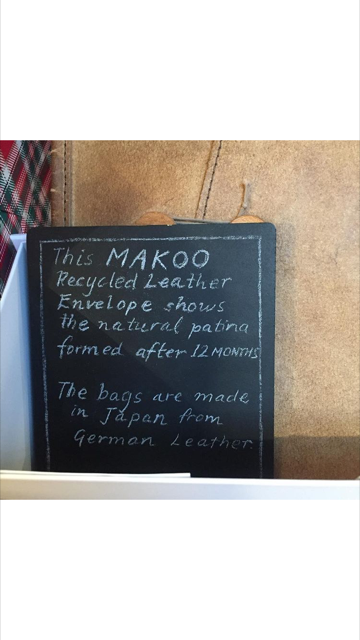 This MAKOO
Recycled Leather
Envelope shows
the natural patina
formed after 12 MONTHS
The bags are made
in Japan from
German Leather.